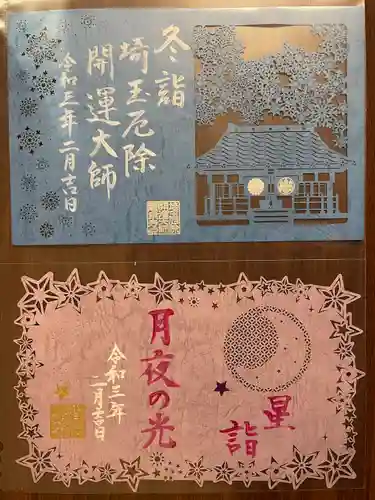 冬詣
埼玉厄除
開運大師
令和三年二月吉日
星
詣
月夜の光
令和三年
二月吉日